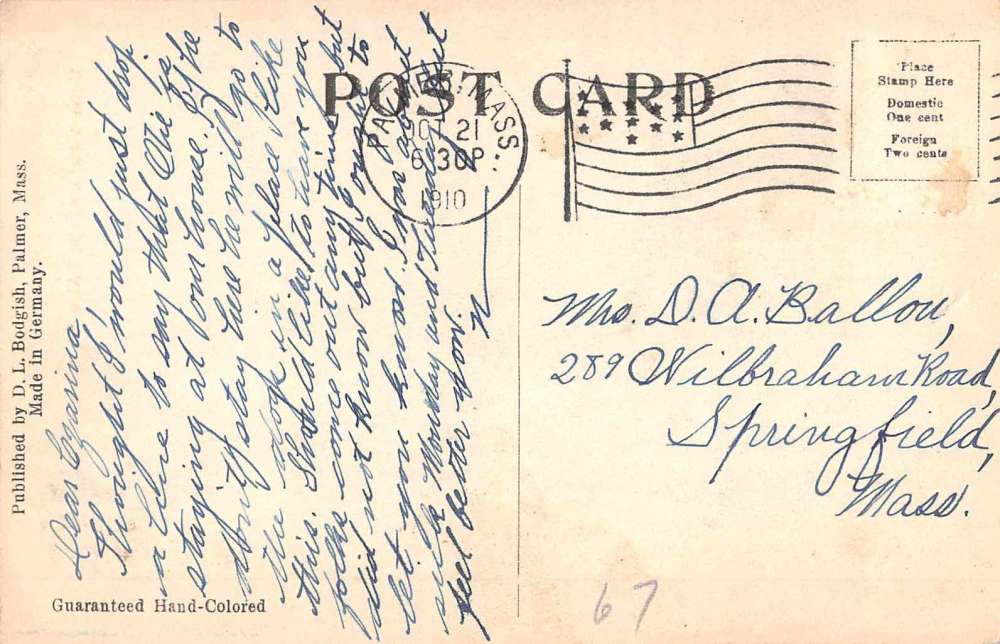 POST CARD
PALMER, MASS.
OCT 21
6 30 P
1910
Place
Stamp Here
Domestic
One cent
Foreign
Two cents
Published by D. L. Bodgish, Palmer, Mass.
Made in Germany.
Dear Czarina
Thought I would just drop
a line to say that Obie is
staying at our house. If he
don't stay here he will go to
the dogs in a place like
this. Should like to have you
folks come out any time but
did not know but I ought to
let you know. I was about
sick Monday and Tuesday but
feel better now.
N
Mrs. D. A. Ballou,
289 Wilbraham Road,
Springfield,
Mass.
Guaranteed Hand-Colored
67